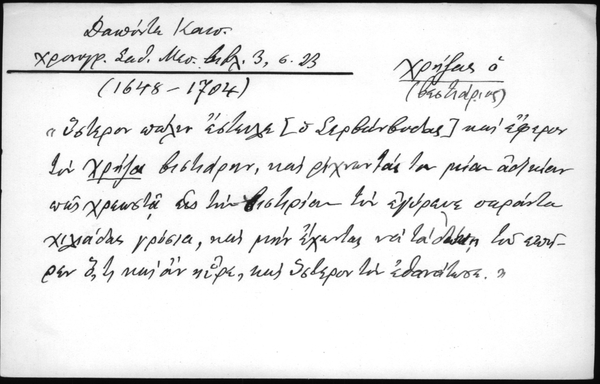 Δαπόντε Καισ.
χρονογρ. Σαθ. Μεσ. βιβλ. 3, σ. 23
(1648-1704)
Χρήσας ὁ
(βεστιάριος)
«Ὕστερον πάλιν ἔστειλε [ὁ Σερβάνβοδας] καὶ ἔφερον
τὸν Χρήσα βεστιάρην, καὶ ρίχνωντάς του μίαν ἀδικίαν
πῶς χρεωστᾷ εἰς τὴν βιστερίαν τὸν ἐγύρευε σαράντα
χιλιάδας γρόσια, καὶ μὴν ἔχωντας νὰ τὰ δώσῃ τοῦ ἐπῆ-
ρεν ὅ,τι καὶ ἂν ηὗρε, καὶ ὕστερον τὸν ἐθανάτωσε.»